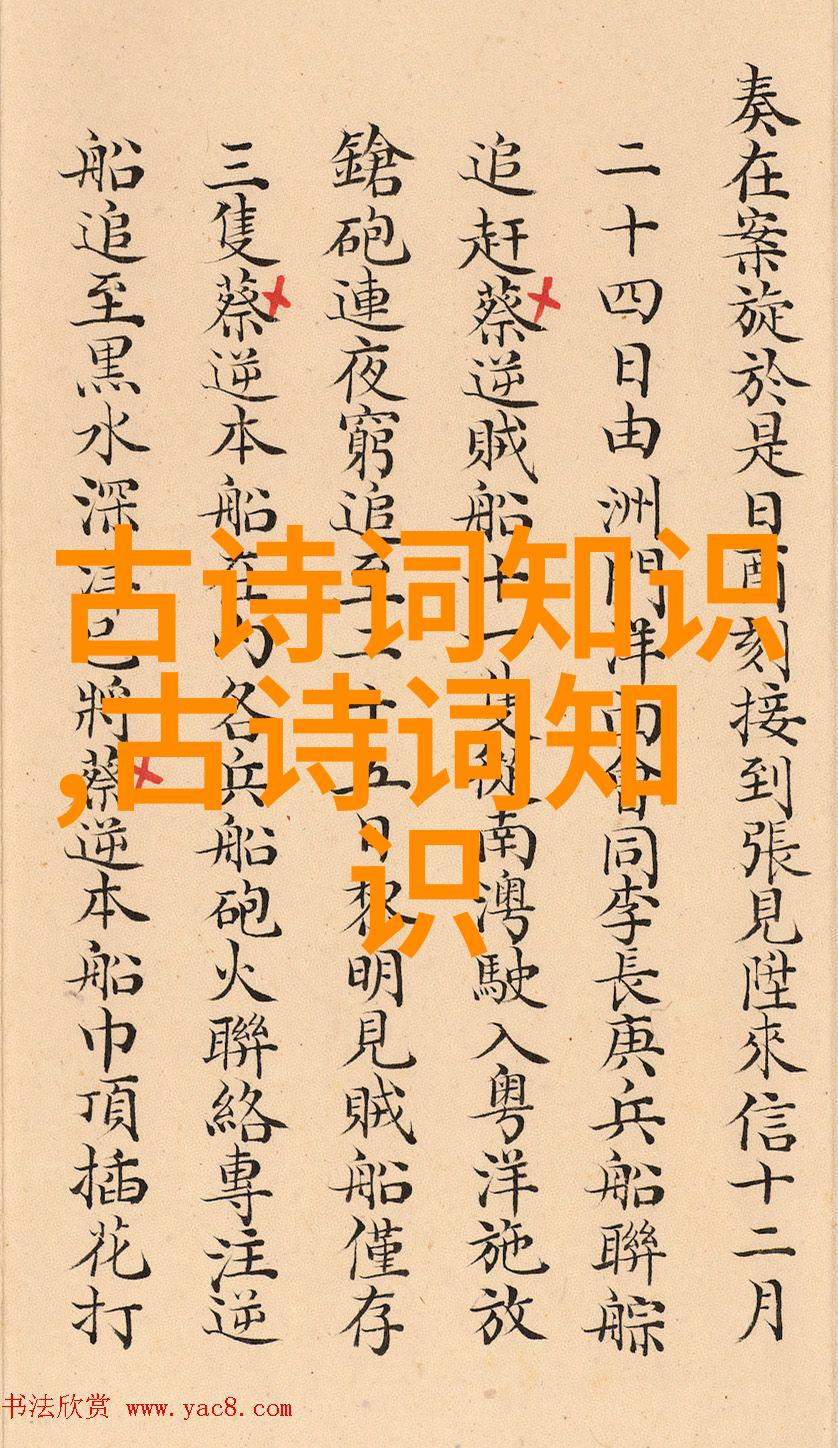 奏在案旋於是日酉刻接到張見陞來信十二月
二十四日由洲門洋面會同李長庚兵船聯䑸
追赶蔡逆賊船十一隻從南澳駛入粤洋施放
鎗砲連夜窮追至二十五日黎明見賊船僅存
三隻蔡逆本船在内各兵船砲火聯絡專注逆
船追至黒水深洋已將蔡逆本船巾頂插花打
古诗词知识
,古诗词知
识
书法欣赏 www.yac8.com